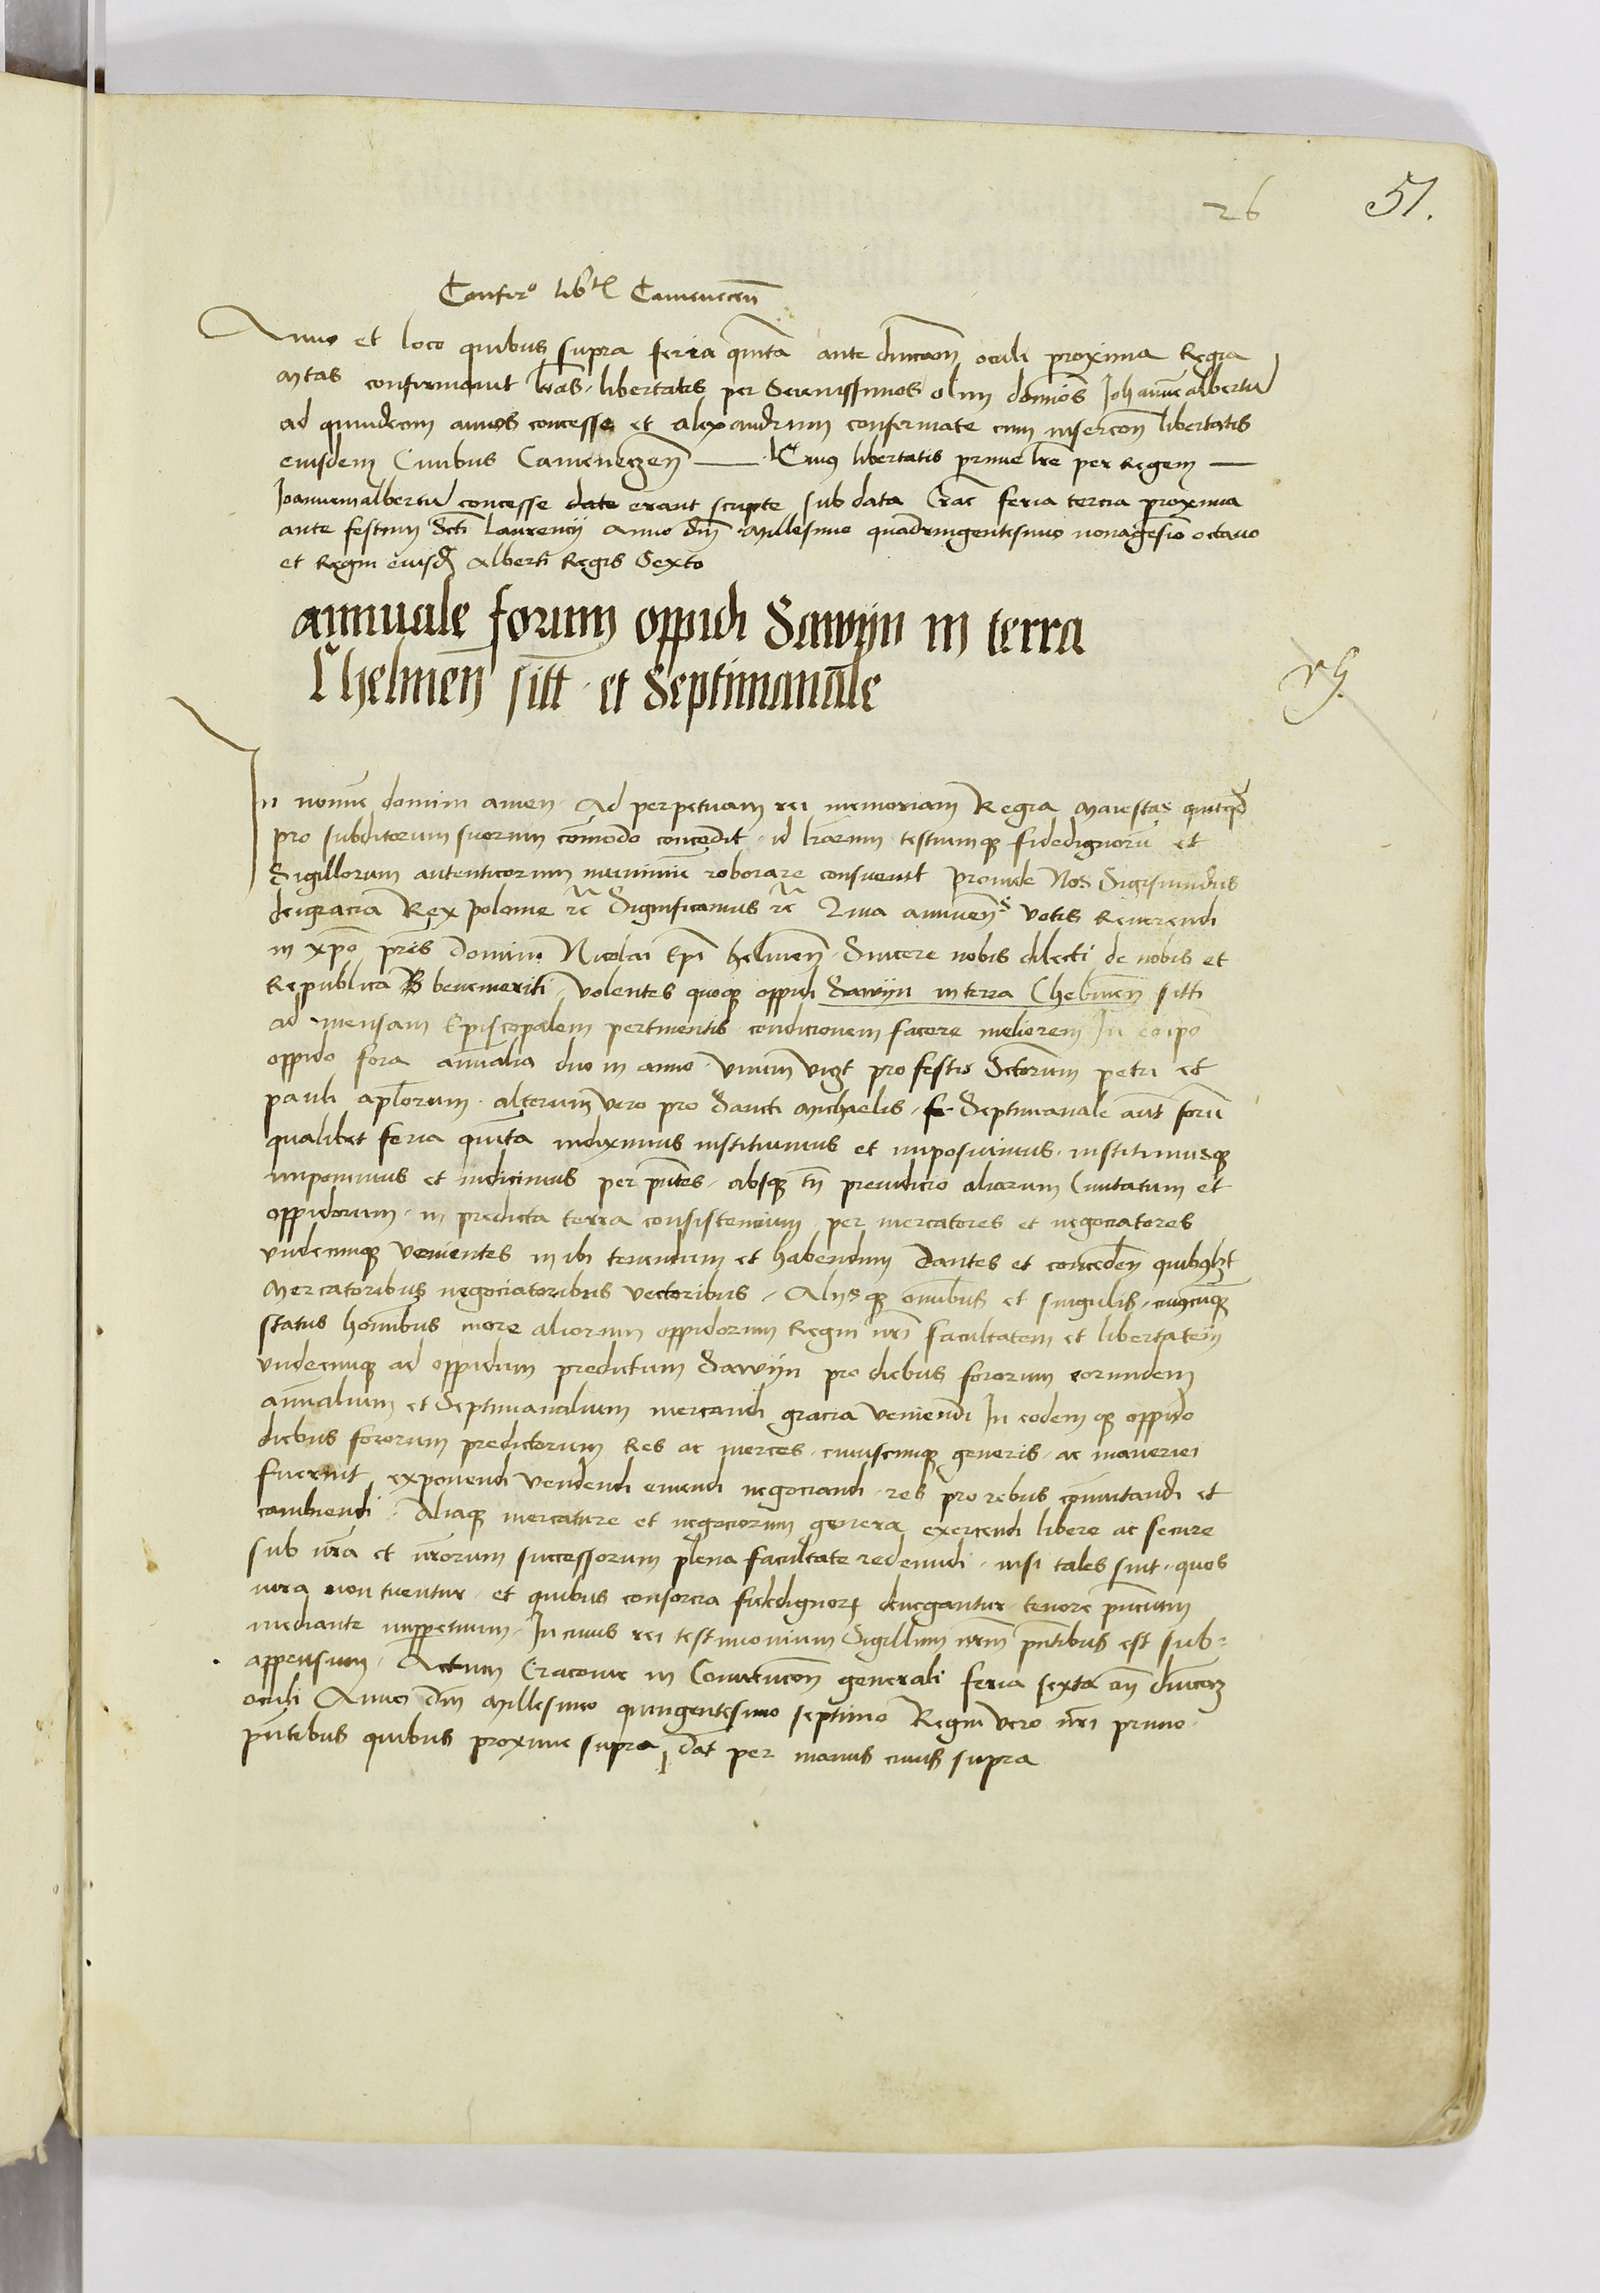 26 51.
Confir⁰ lib^tl Camenecen̄
Anno et loco quibus supra feria quinta ante dn̄icam oculi proxima Regia
Mtas confirmauit lr̄as libertatis per Serenissimos olim dominos Johannēalbertū
ad quindecim annos concesse et alexandrum confirmate cum insercōn libertatis
eiusdem Ciuibus Camenezen̄ — Cuius libertatis prime lr̄e per Regem —
Joannemalbertū concesse date erant scripte sub data Crac̄ feria tercia proxima
ante festum Scti Laurencij Anno dn̄i Millesimo quadringentesimo nonagesīo octauo
et Regni eiusd̄ Alberti Regis Sexto
annuale forum oppidi Sawijn in terra
Chelmen̄ sitt̄ et Septimanale
In nomīe domini amen Ad perpetuam rei memoriam Regia Maiestas quitqd
pro subditorum suorum cōmodo concedit id lr̄arum testiumq; fidedignorū et
Sigillorum autenticorum munimīe roborare consueuit Proinde Nos Sigismūdus
deigracia Rex Polonie rc̄ Significamus rc̄ Qm̄a annuen̄s votis Reuerendi
in xpō pr̄is Domini Nicolai Ep̄i helmen̄ Sincere nobis dilecti de nobis et
Republica B benemeriti volentes quoq; oppidi Sawijn in terra Chelmen̄ sitti
ad mensam Episcopalem pertinentis condicionem facere meliorem In eoip̄o
oppido fora annualia duo in anno vnum vigt̄ pro festis Sctorum petri et
pauli aplorum alterum vero pro Sancti Michaelis Septimanale aut̄ forū
qualibet feria quinta indiximus instituimus et imposuimus instituimusq;
imponimus et indicimus per pn̄tes absq; tn̄ preiudicio aliorum Ciuitatum et
oppidorum in predicta terra consistencium per mercatores et negociatores
vndecunq; venientes in ibi tenendum et habendum Dantes et conceden̄ quibuslzt
Mercatoribus negociatoribus vectoribus Alijsq; omnibus et singulis cuiuscunq;
status hominibus more aliorum oppidorum Regni nr̄i facultatem et libertatem
vndecunq; ad oppidum predictum Sawijn pro diebus fororum eorundem
annalium et Septimanalium mercandi gracia veniendi In eodem q; oppido
diebus fororum predictorum Res ac merces cuiuscunq; generis ac maneriei
fuerint exponendi vendendi emendi negociandi res pro rebus cōmutandi et
cambiendi Aliaq; mercature et negociorum genera exercendi libere ac secure
sub nr̄a et nr̄orum successorum plena facultate redeundi nisi tales sint quos
iura non tuentur et quibus consorcia fidedignorꝝ denegantur tenore pn̄cium
mediante imperpetuum In cuius rei testimonium Sigillum nr̄m pn̄tibus est sub=
appensum Actum Cracouie in Conuencōn generali feria sexta an̄ dn̄icaꝫ
oculi Anno dn̄i Millesimo quingentesimo septimo Regni vero nr̄i primo
pn̄tibus quibus proxime supra dat̄ per manus cuius supra